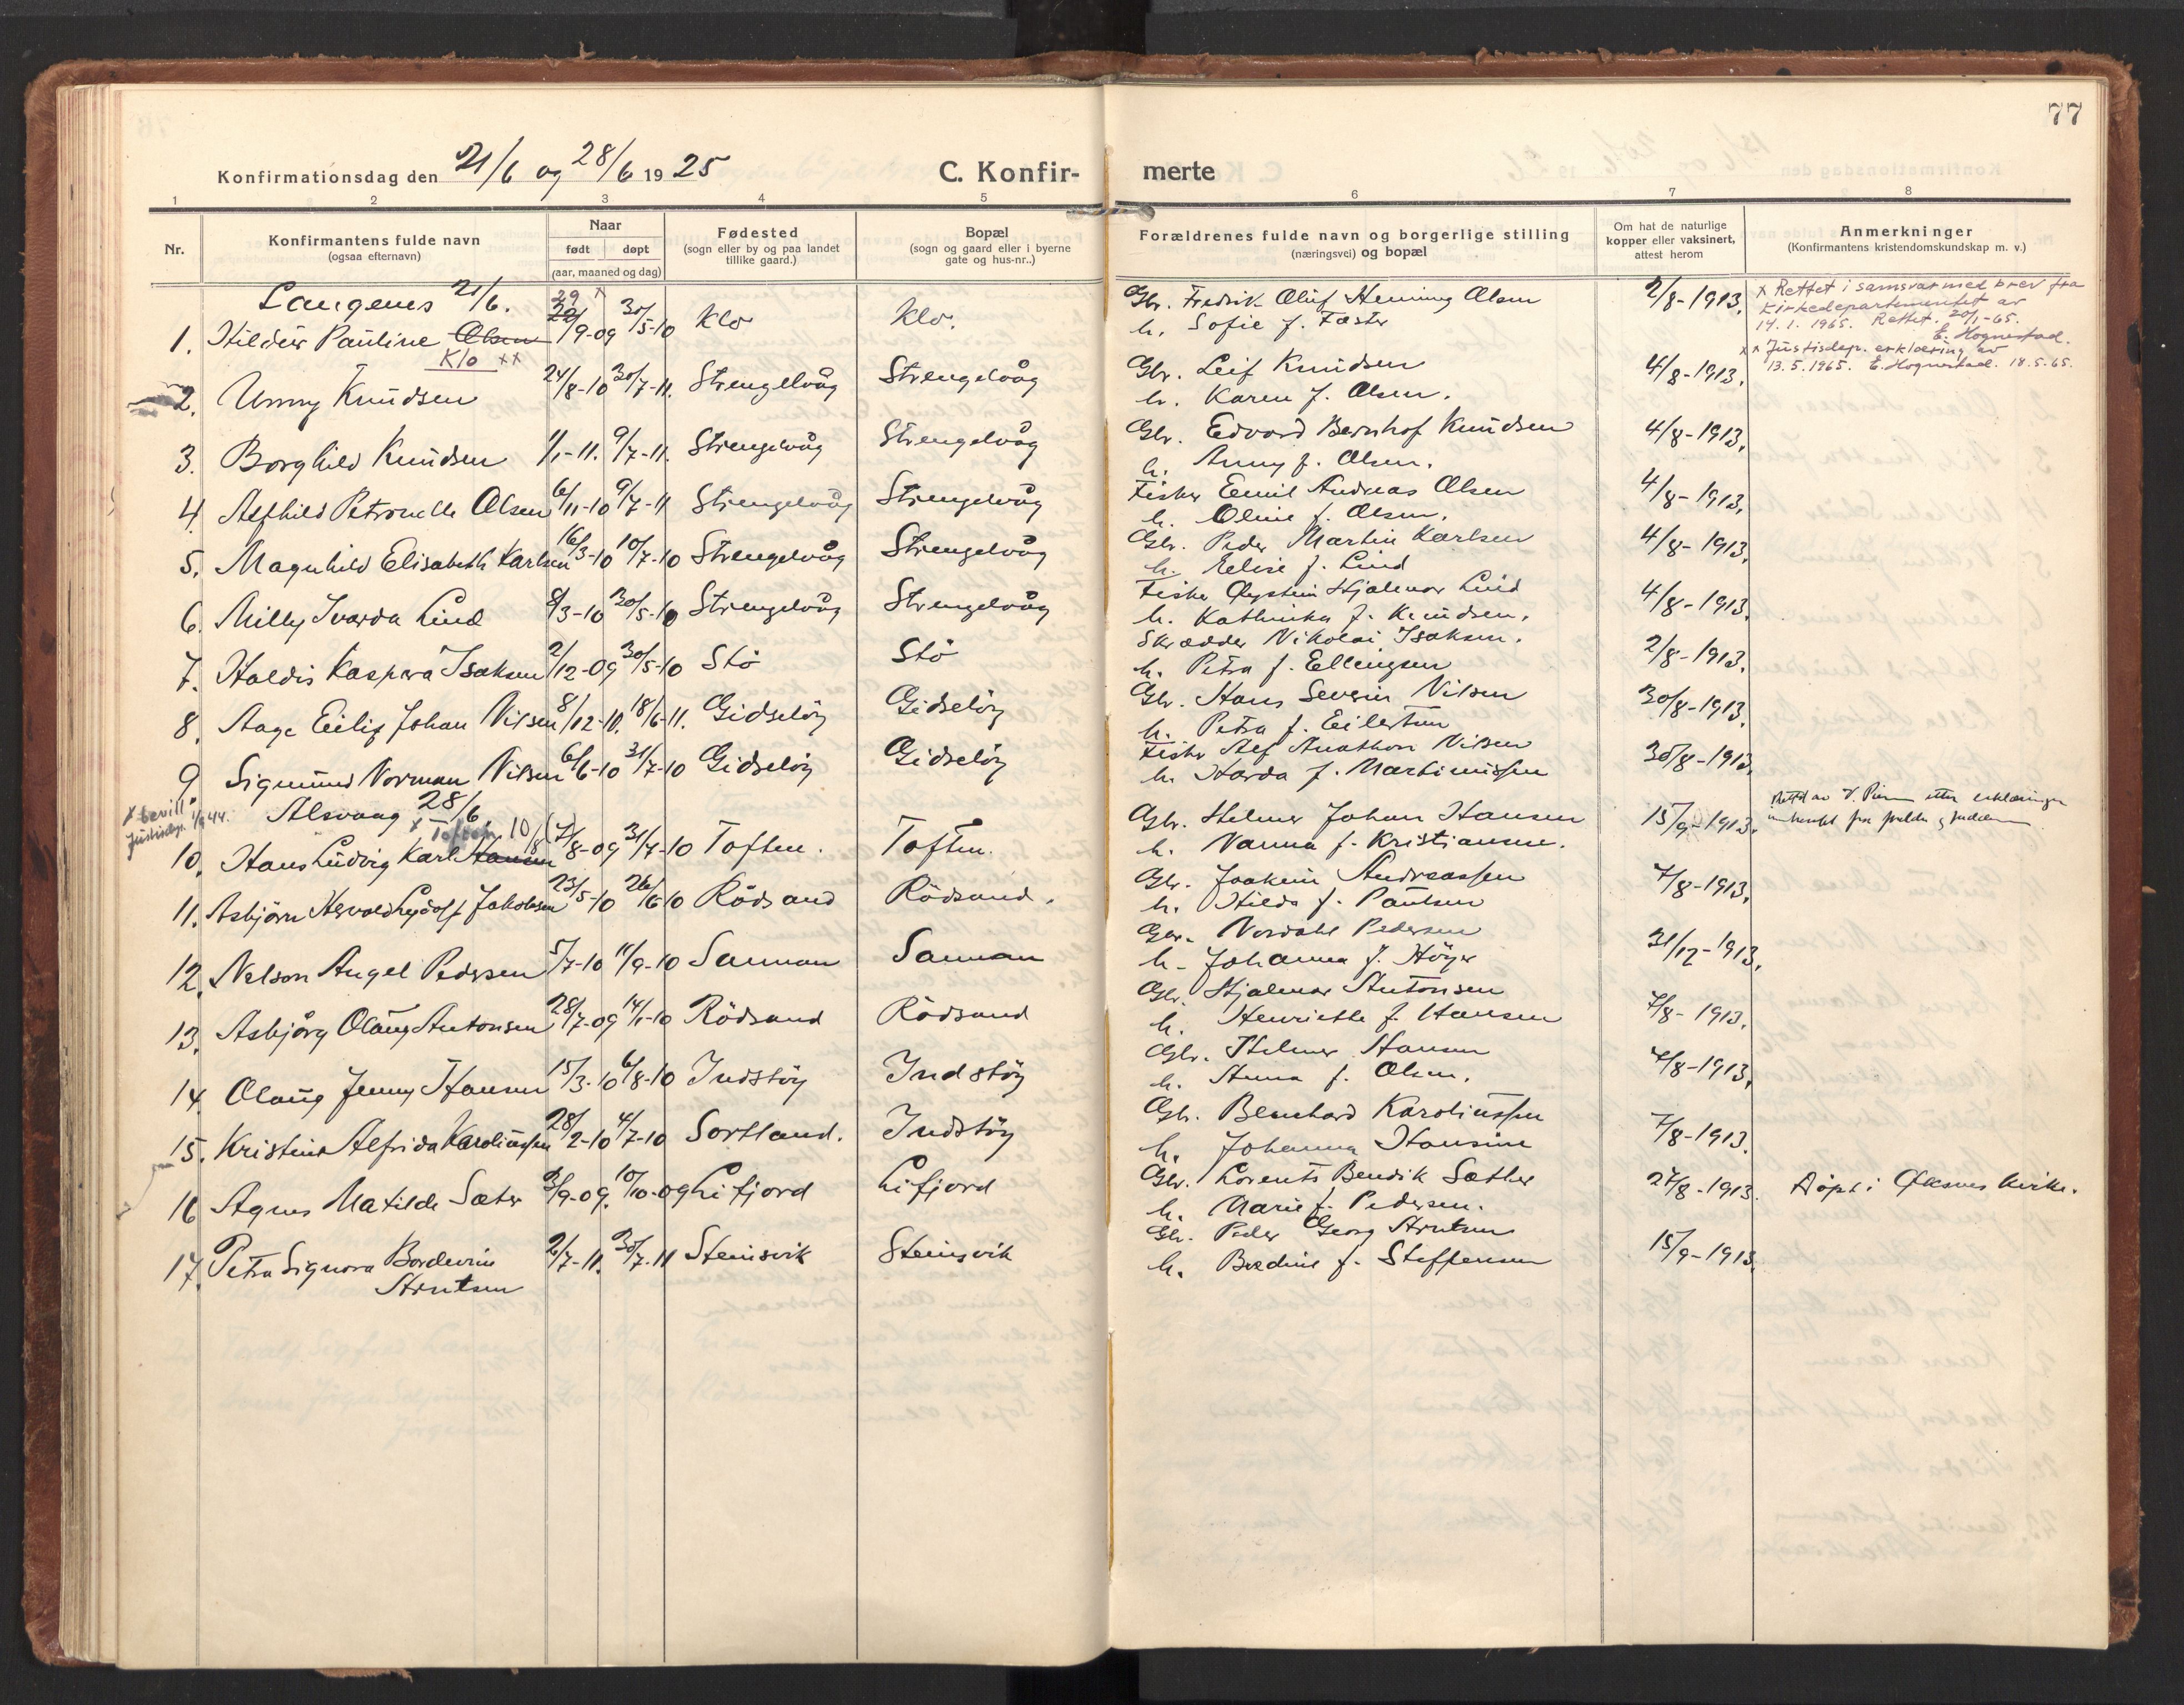 77
Konfirmationsdag den 21/6 og 28/6 1925
C. Konfir- merte
1 2 3 4 5 6 7 8
Nr.
Konfirmantens fulde navn
(ogsaa efternavn)
Naar
født døpt
(aar, maaned og dag)
Fødested
(sogn eller by og paa landet
tillike gaard.)
Bopæl
(sogn og gaard eller i byerne
gate og hus-nr..)
Forældrenes fulde navn og borgerlige stilling
(næringsvei) og bopæl
Om hat de naturlige
kopper eller vaksinert,
attest herom
Anmerkninger
(Konfirmantens kristendomskundskap m. v.)
Langenes 21/6.
1. Hildur Pauline Olsen 29 x 22/9-09 30/5-10 Klo Klo. Gbr. Fredrik Oluf Hening Olsen 2/8-1913.
Klo xx
h. Sofie f. Faster
x Rettet i samsvar med brev fra
Kirkedepartementet av
14.1.1965. Rettet. 20/1-65.
E. Hognestad.
xx Justisdep. erklæring av
13.5.1965. E. Hognestad. 18.5-65.
2. Unny Knudsen 24/8-10 30/7-11. Strengelvåg Strengelvåg Gbr. Leif Knudsen 4/8-1913.
h. Karen f. Olsen.
3. Borghild Knudsen 1/1-11. 9/7-11. Strengelvåg Strengelvåg Gbr. Edvard Bernhof Knudsen 4/8-1913.
h. Anny f. Olsen.
4. Alfhild Petronelle Olsen 6/11-10 9/7-11 Strengelvåg Strengelvåg Fisker Emil Andreas Olsen 4/8-1913.
h. Oline f. Olsen.
5. Magnhild Elisabeth Karlsen 16/3-10 10/7-10 Strengelvåg Strengelvåg Gbr. Peder Martin Karlsen 4/8-1913.
h. Elise f. Lind
6. Milly Ivarda Lind 8/3-10 30/5-10 Strengelvåg Strengelvåg Fisker Øystein Hjalmar Lind 4/8-1913.
h. Kathinka f. Knudsen.
7. Haldis Kaspara Isaksen 2/12-09 30/5-10 Stö Stö Skrædder Nikolai Isaksen. 2/8-1913.
h. Petra f. Ellingsen
8. Aage Eilif Johan Nilsen 8/12-10. 18/6-11. Gidselöy Gidselöy Gbr. Hans Severin Nilsen 30/8-1913.
h. Petra f. Eilertsen
9 Sigmund Norman Nilsen 6/6-10 31/7-10 Gidselöy Gidselöy Fisker Alf Anathon Nilsen 30/8-1913.
h. Harda f. Martinussen
Alsvaag 28/6.
x bevill.
Justisdep. 1/8 44.
x Toften
10. Hans Ludvig Karl Hansen 10/8 (7/8-09 31/7-10 Toften. Toften. Gbr. Helmer Johan Hansen 15/9-1913.
h. Nanna f. Kristiansen.
11. Asbjörn Hervald Jakobsen 23/5-10 26/6-10 Rödsand Rödsand. Gbr. Joakim Andreassen 7/8-1913.
h. Hilda f. Paulsen
12. Nelson Angel Pedersen 5/7-10 11/9-10 Sannan Sannan Gbr. Nordahl Pedersen 31/12-1913.
h. Johanna f. Höyer
13. Asbjörg Olaug Antonsen 28/7-09 14/1-10 Rödsand Rödsand Gbr. Hjalmar Antonsen 7/8-1913.
h. Henriette f. Hansen
14. Olaug Jenny Hansen 15/3-10 6/8-10 Indstöy Indstöy Gbr. Hilmer Hansen 7/8-1913.
h. Anna f. Olsen.
15. Kristine Alfrida Karoliussen 28/2-10 4/7-10 Sortland. Indstöy Gbr. Bernhard Karoliussen 7/8-1913.
h. Johanna Hansine
16 Agnes Matilde Sæter 3/9-09. 10/10-09 Lifjord Lifjord Gbr. Lorents Bendik Sæther 27/8-1913. Döpt i Øksnes kirke.
h. Marie f. Pedersen.
17. Petra Signora Bordevine 2/7-11. 30/7-11 Steinsvik Steinsvik Gbr. Peder Georg Arntsen 15/9-1913.
Arntsen
h. Berdine f. Steffensen